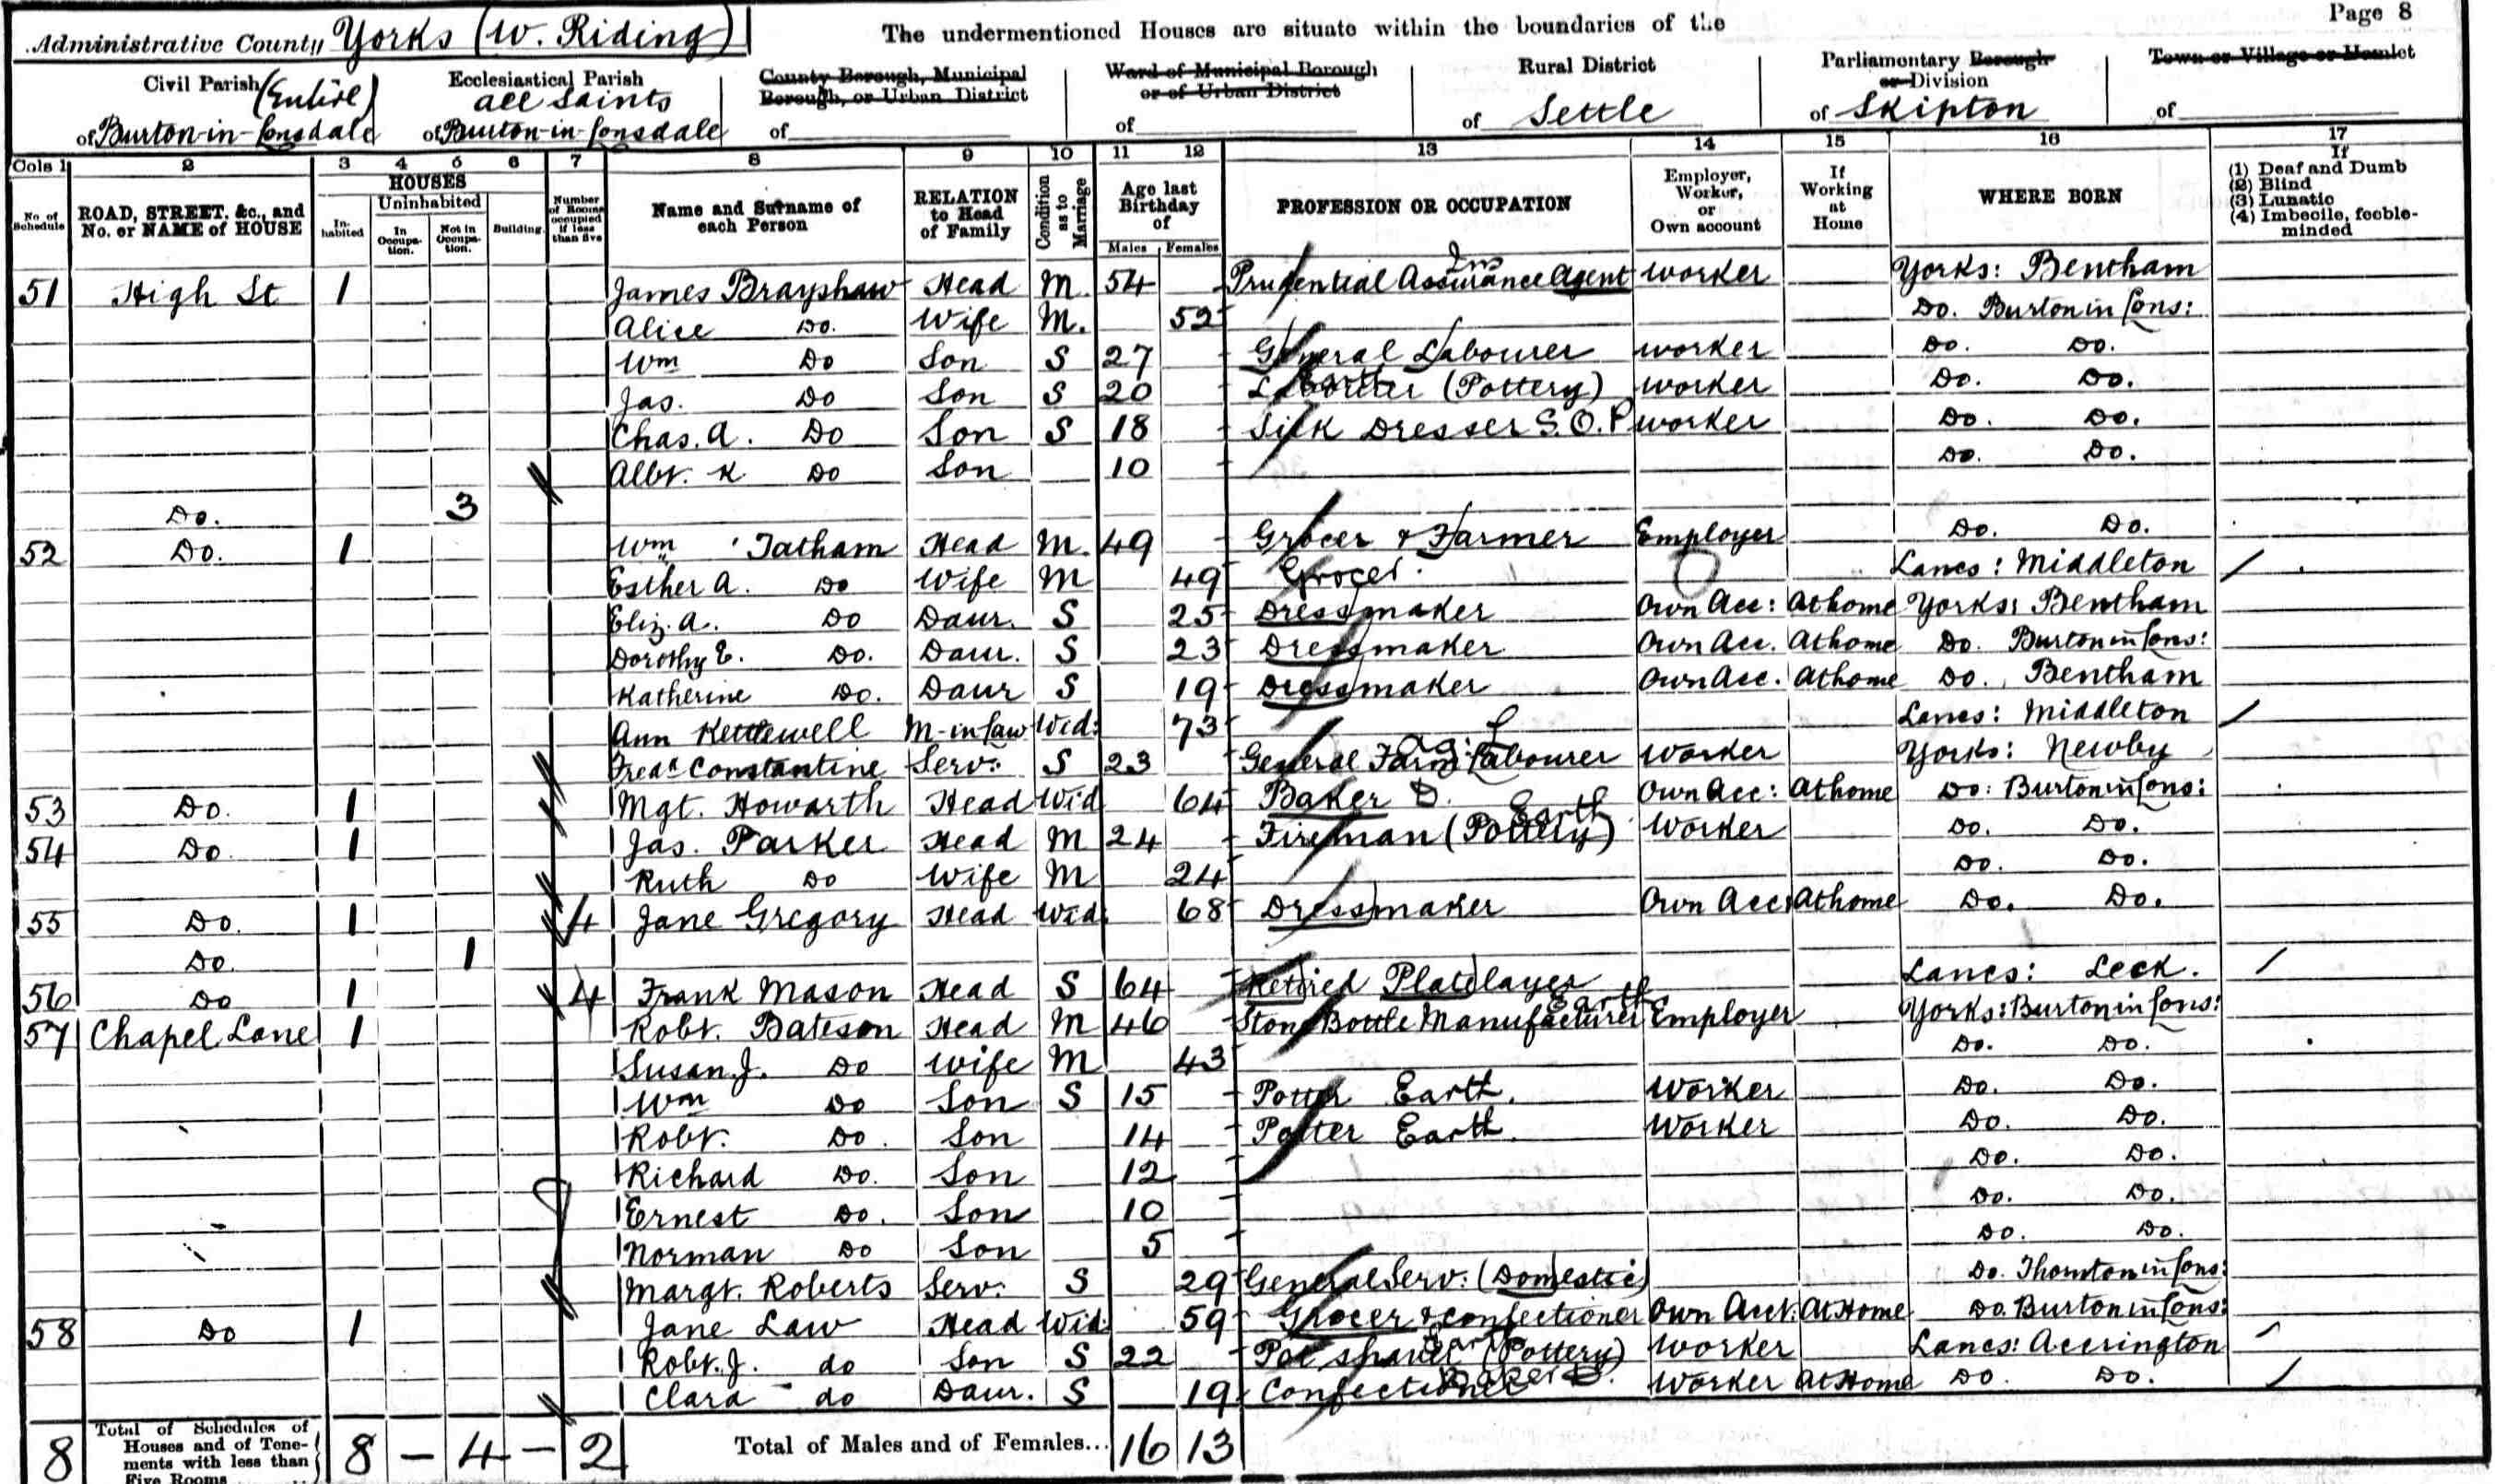 Page 8
Administrative County Yorks (W. Riding)
The undermentioned Houses are situate within the boundaries of the
Civil Parish (Entire) of Burton-in-Lonsdale
Ecclesiastical Parish All Saints of Burton-in-Lonsdale
County Borough, Municipal Borough, or Urban District of
Ward of Municipal Borough or of Urban District of
Rural District of Settle
Parliamentary Borough or Division of Skipton
Town or Village or Hamlet of
Cols 1 2 3 4 5 6 7 8 9 10 11 12 13 14 15 16 17
No. of Schedule
ROAD, STREET, &c., and No. or NAME of HOUSE
HOUSES
Inhabited
Uninhabited
In Occupation.
Not in Occupation.
Building.
Number of Rooms occupied if less than five
Name and Surname of each Person
RELATION to Head of Family
Condition as to Marriage
Age last Birthday of
Males Females
PROFESSION OR OCCUPATION
Employer, Worker, or Own account
If Working at Home
WHERE BORN
If
(1) Deaf and Dumb
(2) Blind
(3) Lunatic
(4) Imbecile, feeble-minded
51 High St 1 James Brayshaw Head M. 54 Prudential Assurance Agent Ins worker Yorks: Bentham
Alice Do. Wife M. 52 Do. Burton in Lons:
Wm Do Son S 27 General Labourer worker Do. Do.
Jas. Do Son S 20 Labourer (Pottery) Earth worker Do. Do.
Chas. A. Do Son S 18 Silk Dresser S.O.P worker Do. Do.
Albt. K Do Son 10 Do. Do.
Do. 3
52 Do. 1 Wm Tatham Head M. 49 Grocer & Farmer Employer Do. Do.
Esther A. Do Wife M 49 Grocer Lancs: Middleton
Eliz. A. Do Daur. S 25 Dressmaker Own Acc: At home Yorks: Bentham
Dorothy E. Do. Daur. S 23 Dressmaker Own Acc. At home Do. Burton in Lons:
Katherine Do. Daur S 19 Dressmaker Own Acc. At home Do. Bentham
Ann Kettlewell M-in Law Wid: 73 Lancs: Middleton
Fredk Constantine Serv: S 23 General Farm Labourer Ag: L Worker Yorks: Newby
53 Do. 1 Mgt. Howarth Head Wid 64 Baker D. Own Acc: At home Do: Burton in Lons:
54 Do 1 Jas. Parker Head M 24 Fireman (Pottery) Earth Worker Do. Do.
Ruth Do Wife M 24 Do. Do.
55 Do. 1 4 Jane Gregory Head Wid. 68 Dressmaker Own Acc: At home Do. Do.
Do. 1
56 Do 1 4 Frank Mason Head S 64 Retired Platelayer Lancs: Leck.
57 Chapel Lane 1 Robt. Bateson Head M 46 Stone Bottle Manufacturer Earth Employer Yorks: Burton in Lons:
Susan J. Do Wife M 43 Do. Do.
Wm Do Son S 15 Potter Earth. Worker Do. Do.
Robt. Do. Son 14 Potter Earth. Worker Do. Do.
Richard Do. Son 12 Do. Do.
Ernest Do. Son 10 Do. Do.
Norman Do Son 5 Do. Do.
Margt. Roberts Serv: S 29 General Serv: (Domestic) Do. Thornton in Lons:
58 Do 1 Jane Law Head Wid: 59 Grocer & Confectioner Own Acct. At Home Do. Burton in Lons:
Robt. J. do Son S 22 (Pottery) Worker Lancs: Accrington
Clara do Daur. S 19 Confectioner Baker D. Worker At Home Do. Do.
8 Total of Schedules of Houses and of Tenements with less than Five Rooms 8 - 4 - 2 Total of Males and of Females... 16 13